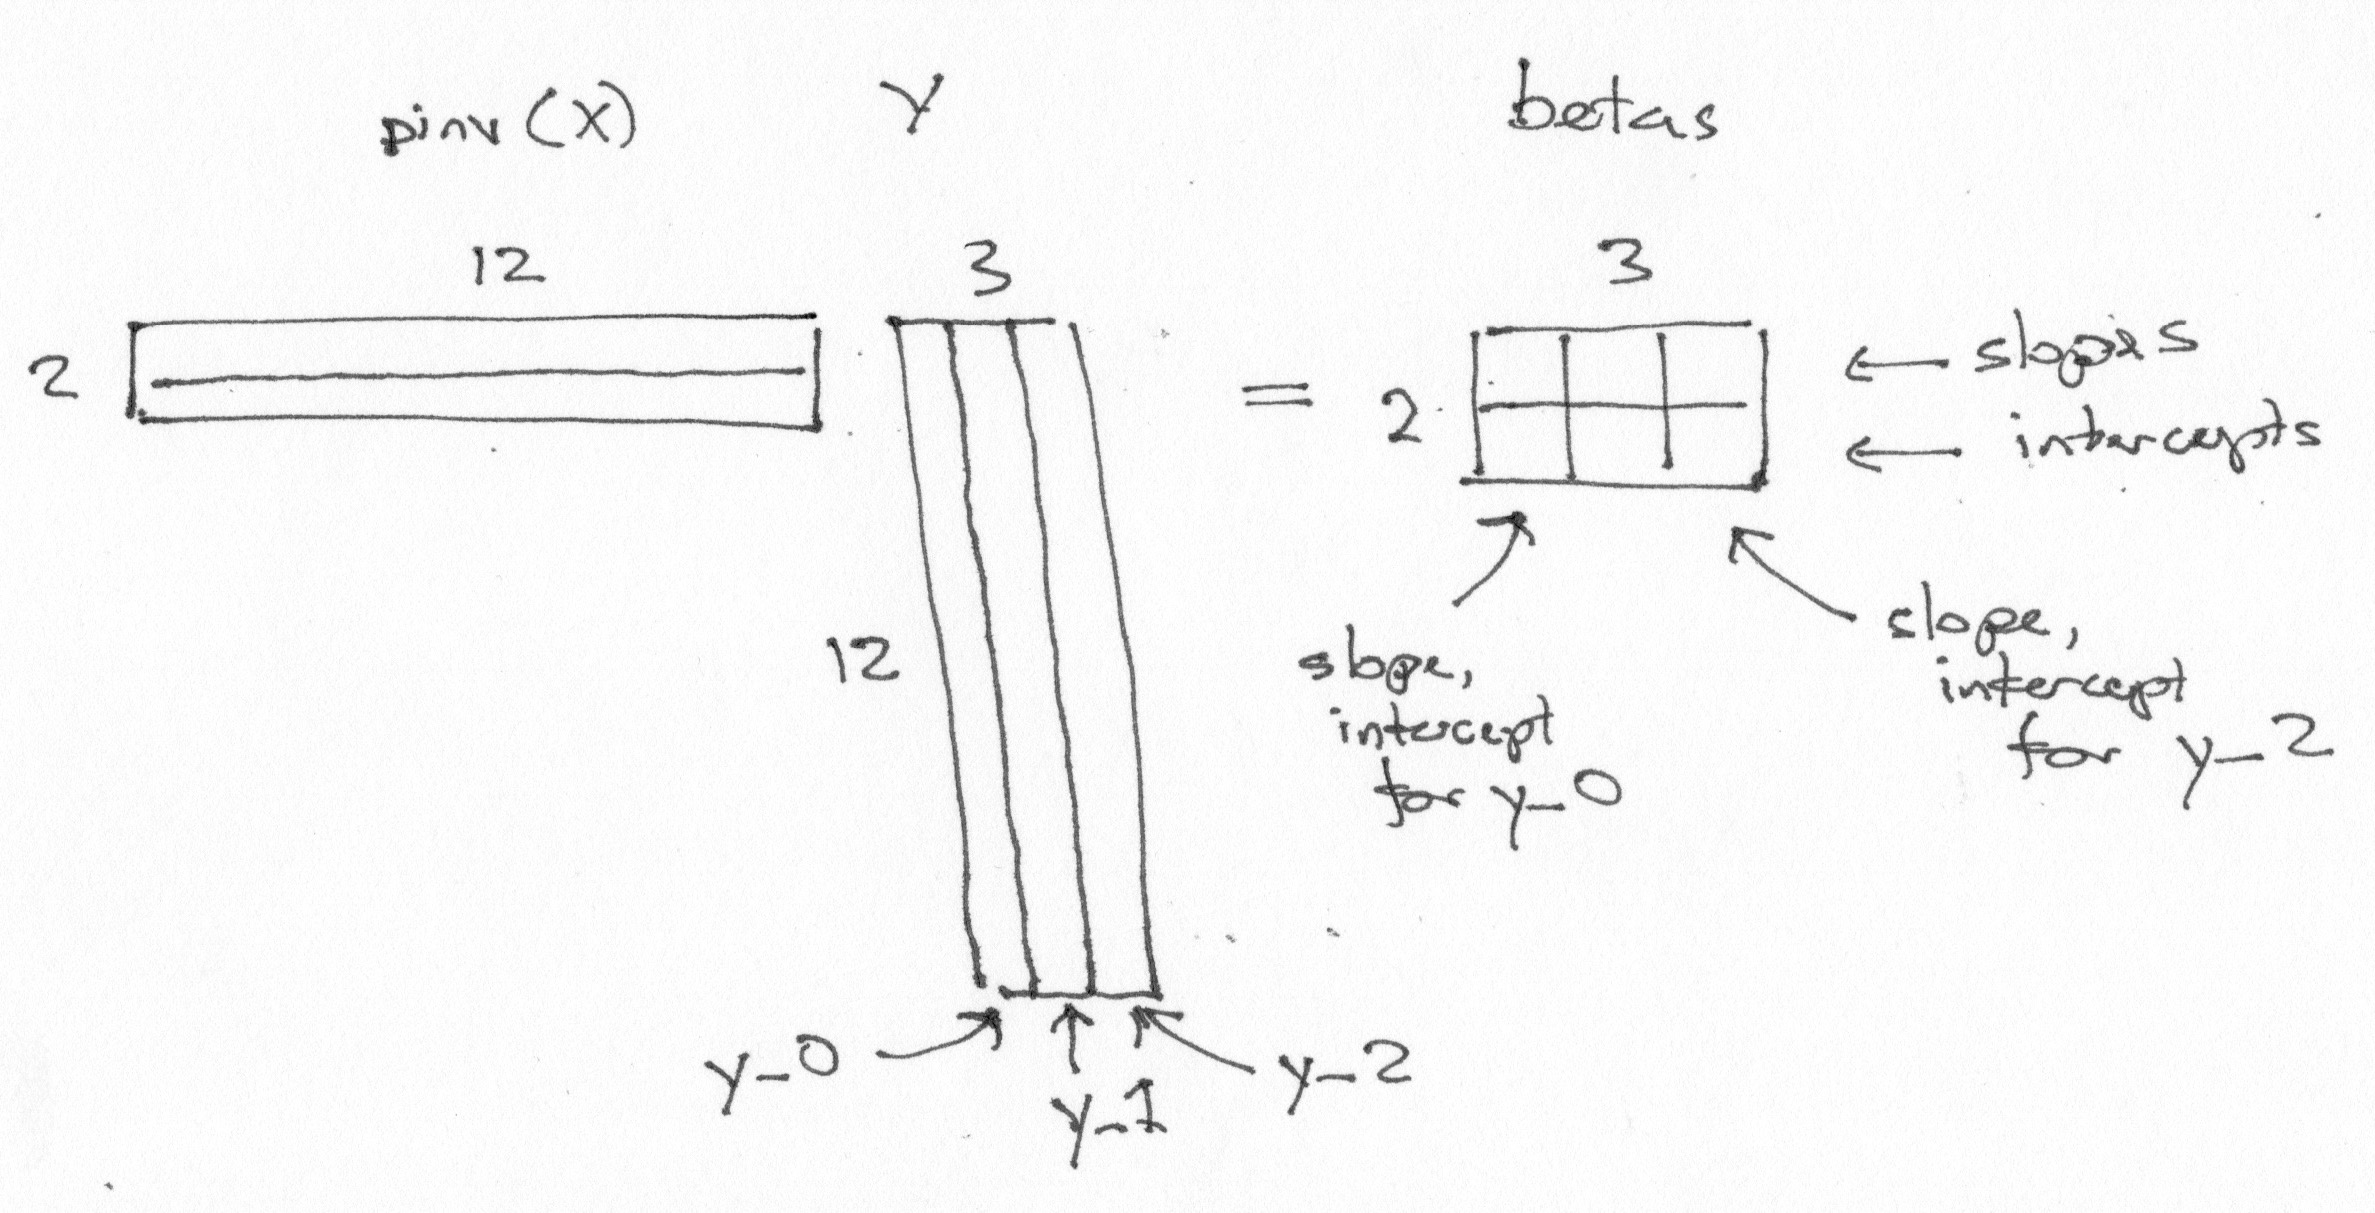 pinv (X) Y betas
12 3 3
2
= 2
← slopes
← intercepts
12
slope,
intercept
for y_0
slope,
intercept
for y_2
y_0
y_1
y_2